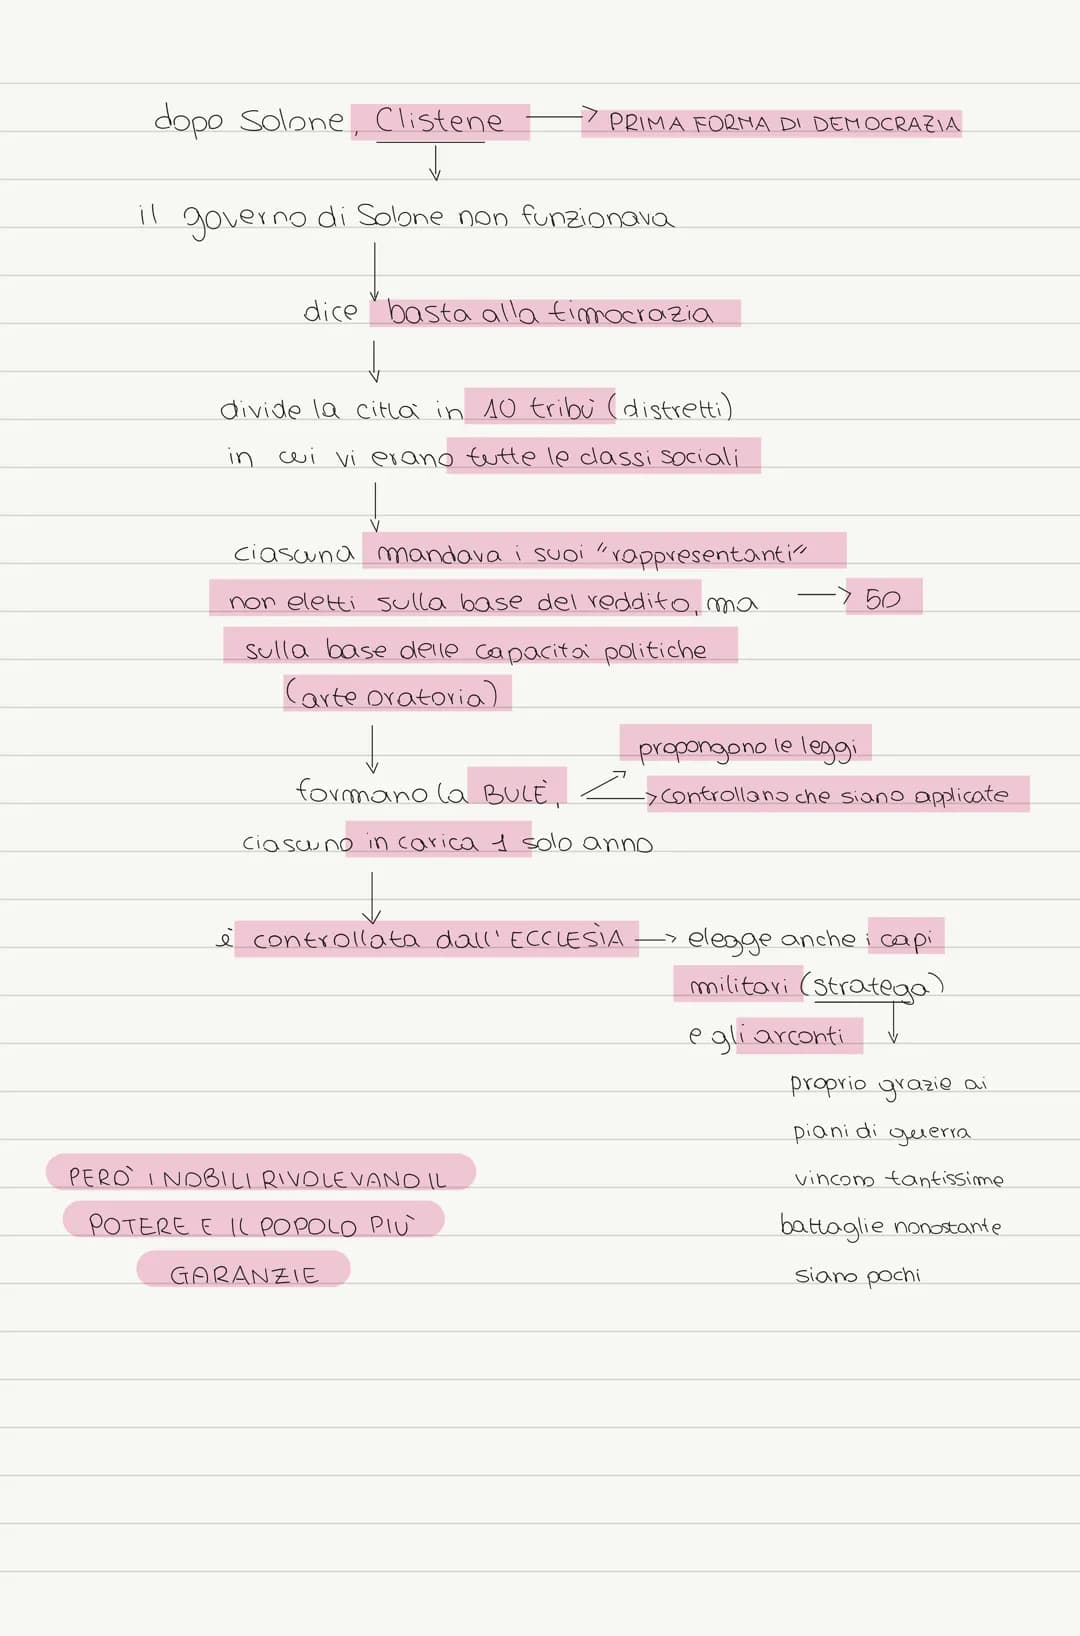 dopo Solone, Clistene → PRIMA FORMA DI DEMOCRAZIA
il governo di Solone non funzionava
dice basta alla timocrazia
divide la città in 10 tribù (distretti)
in cui vi erano tutte le classi sociali
ciascuna mandava i suoi "rappresentanti"
non eletti sulla base del reddito, ma → 50
sulla base delle capacità politiche
(arte oratoria)
propongono le leggi
formano la BULÈ, → controllano che siano applicate
ciascuno in carica 1 solo anno
è controllata dall'ECCLESÌA → elegge anche i capi
militari (stratega)
e gli arconti
proprio grazie ai
piani di guerra
vincono tantissime
battaglie nonostante
siano pochi
PERÒ I NOBILI RIVOLEVANO IL
POTERE E IL POPOLO PIÙ
GARANZIE